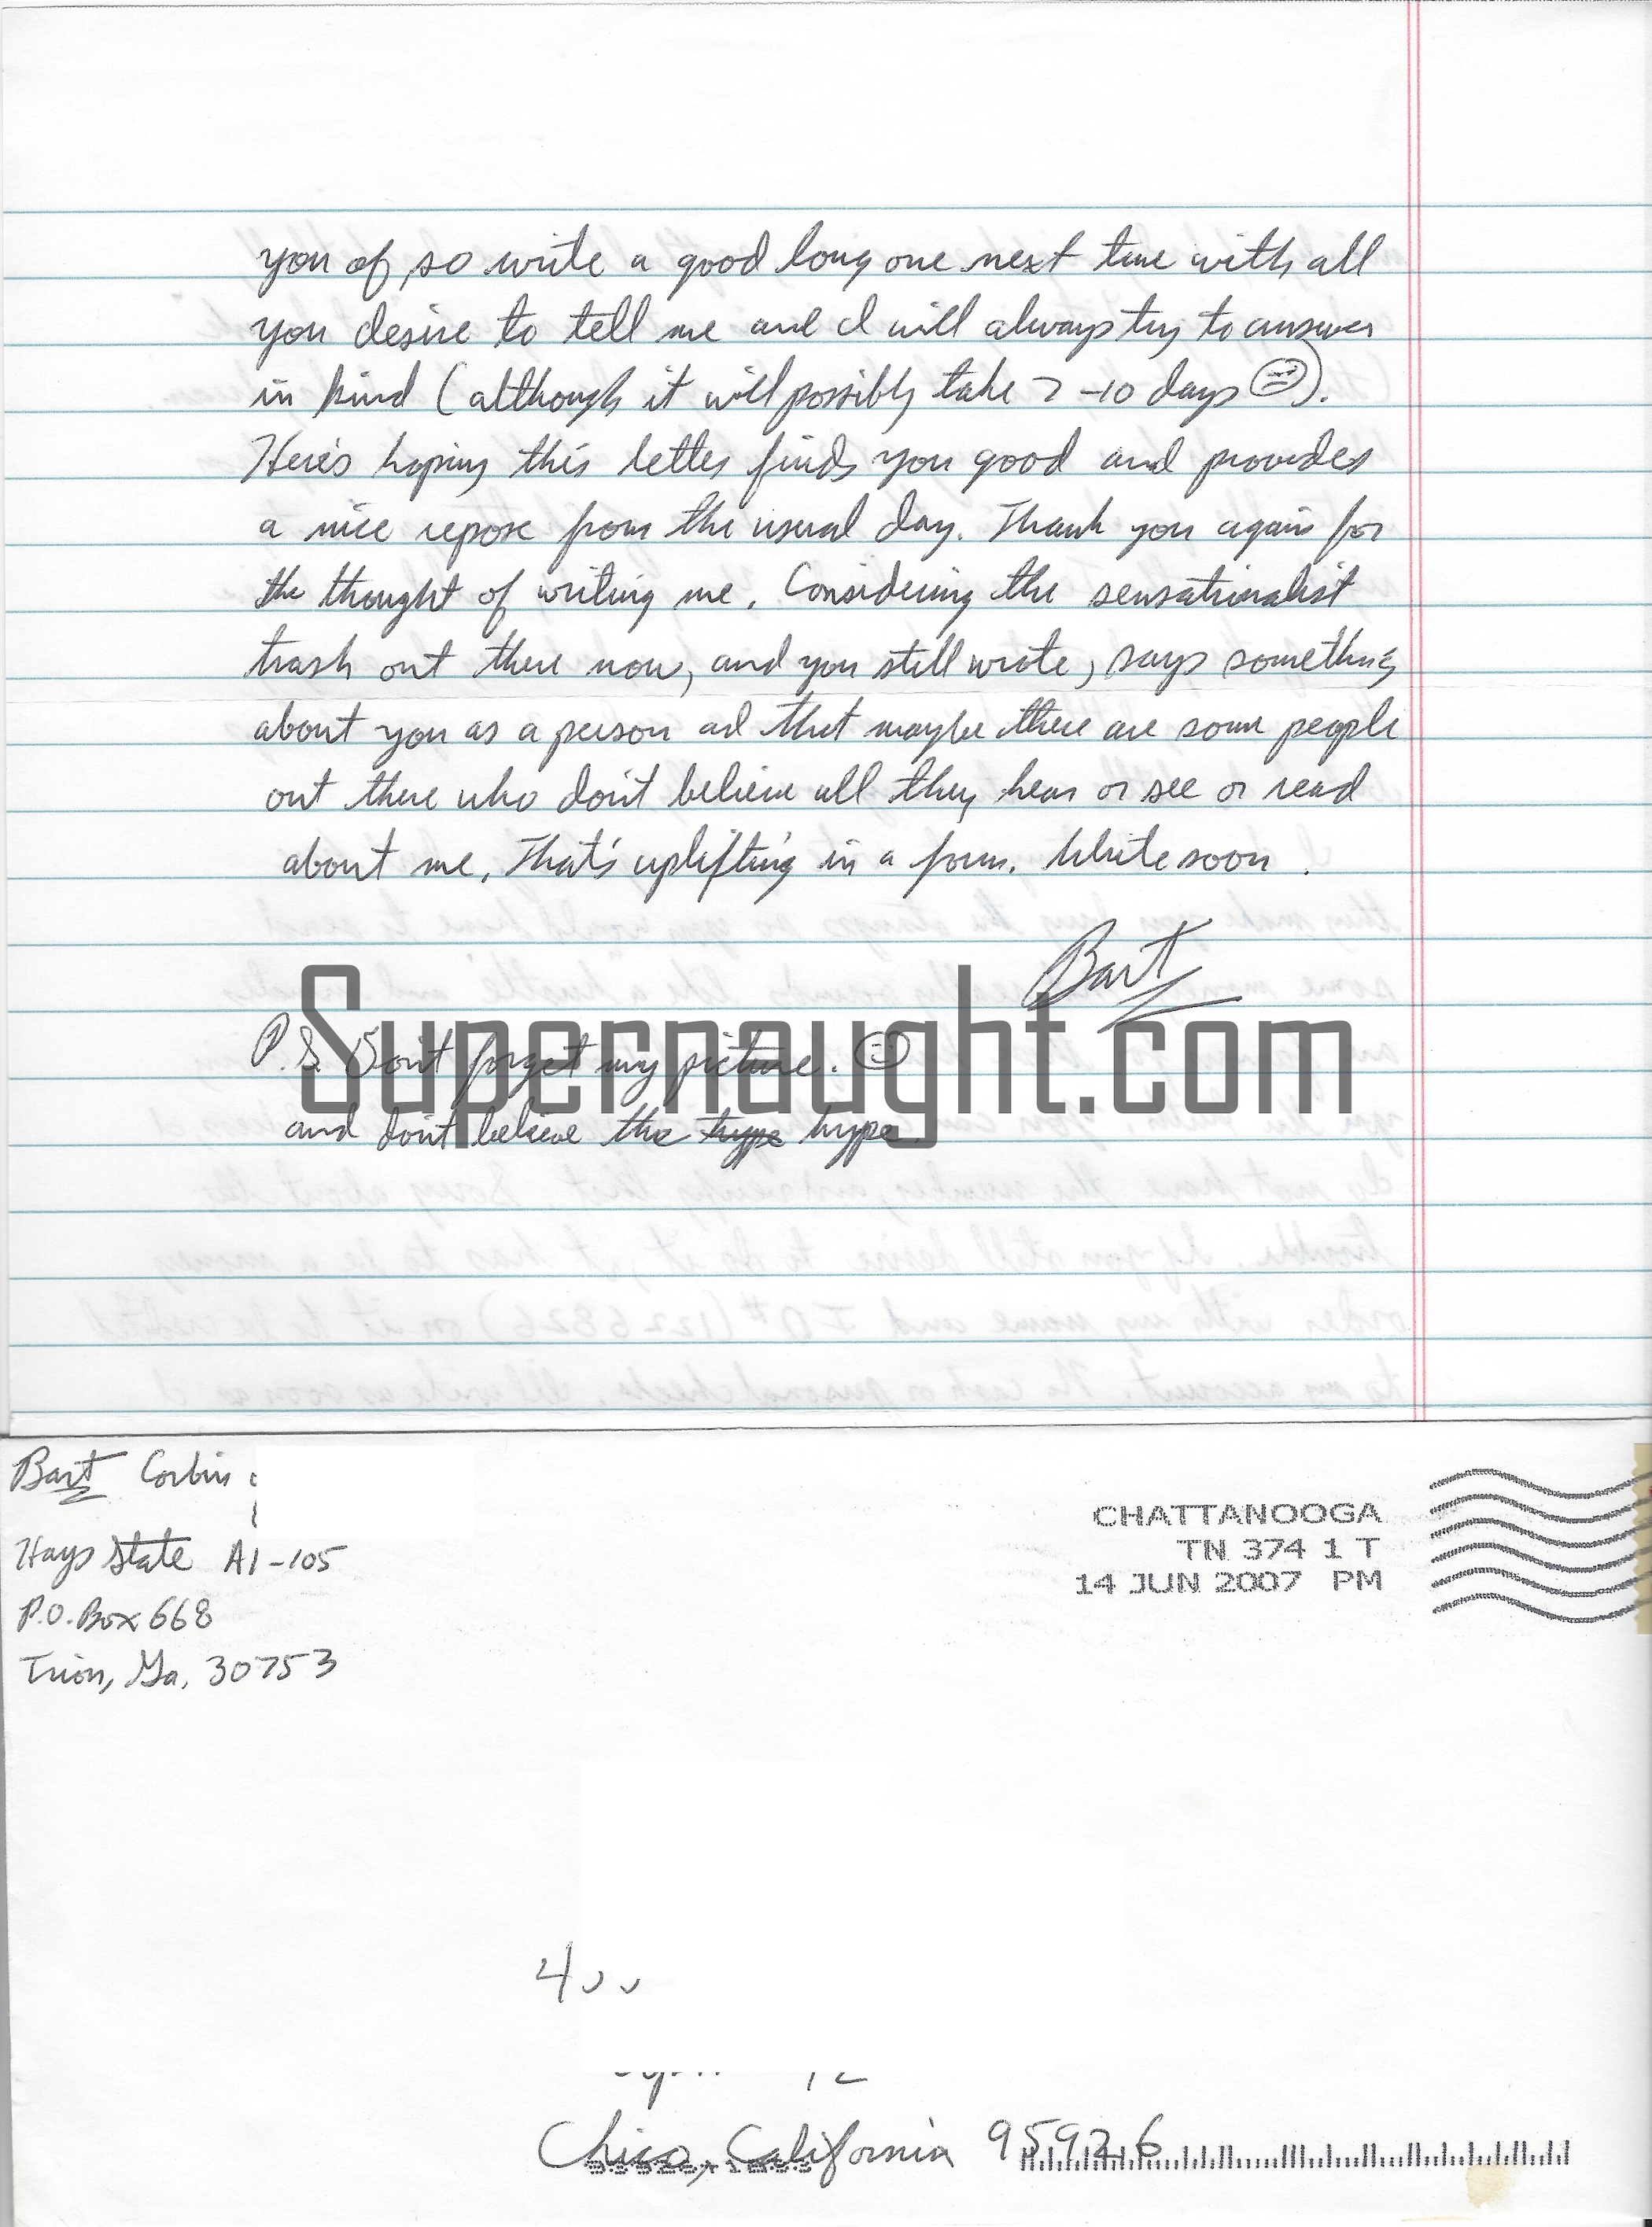 you of, so write a good long one next time with all
you desire to tell me and I will always try to answer
in kind (although it will possibly take 7-10 days).
Here's hoping this letter finds you good and provides
a nice repose from the usual day. Thank you again for
the thought of writing me. Considering the sensationalist
trash out there now, and you still wrote, says something
about you as a person ad that maybe there are some people
out there who don't believe all they hear or see or read
about me. That's uplifting in a form. Write soon.
Bart
Supernaught.com
P.S. Don't forget my picture.
and don't believe the hype hype
Bart Corbin
Hays State A1-105
P.O. Box 668
Trion, Ga. 30753
CHATTANOOGA
TN 374 1 T
14 JUN 2007 PM
Chico, California 95926